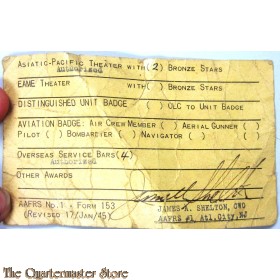 Asiatic-Pacific Theater with(2) Bronze Stars
Authorized
EAME Theater with( ) Bronze Stars
Distinguished Unit Badge ( ) OLC to Unit Badge
Aviation Badge: Air Crew Member ( ) Aerial Gunner ( )
Pilot ( ) Bombardier ( ) Navigator ( )
Overseas Service Bars(4)
Authorized
Other Awards
AAFRS No.1 - Form 153
(Revised 17/Jan/45)
James K. Shelton, CWO
AAFRS #1 Atl.City,NJ
The Quartermaster Store